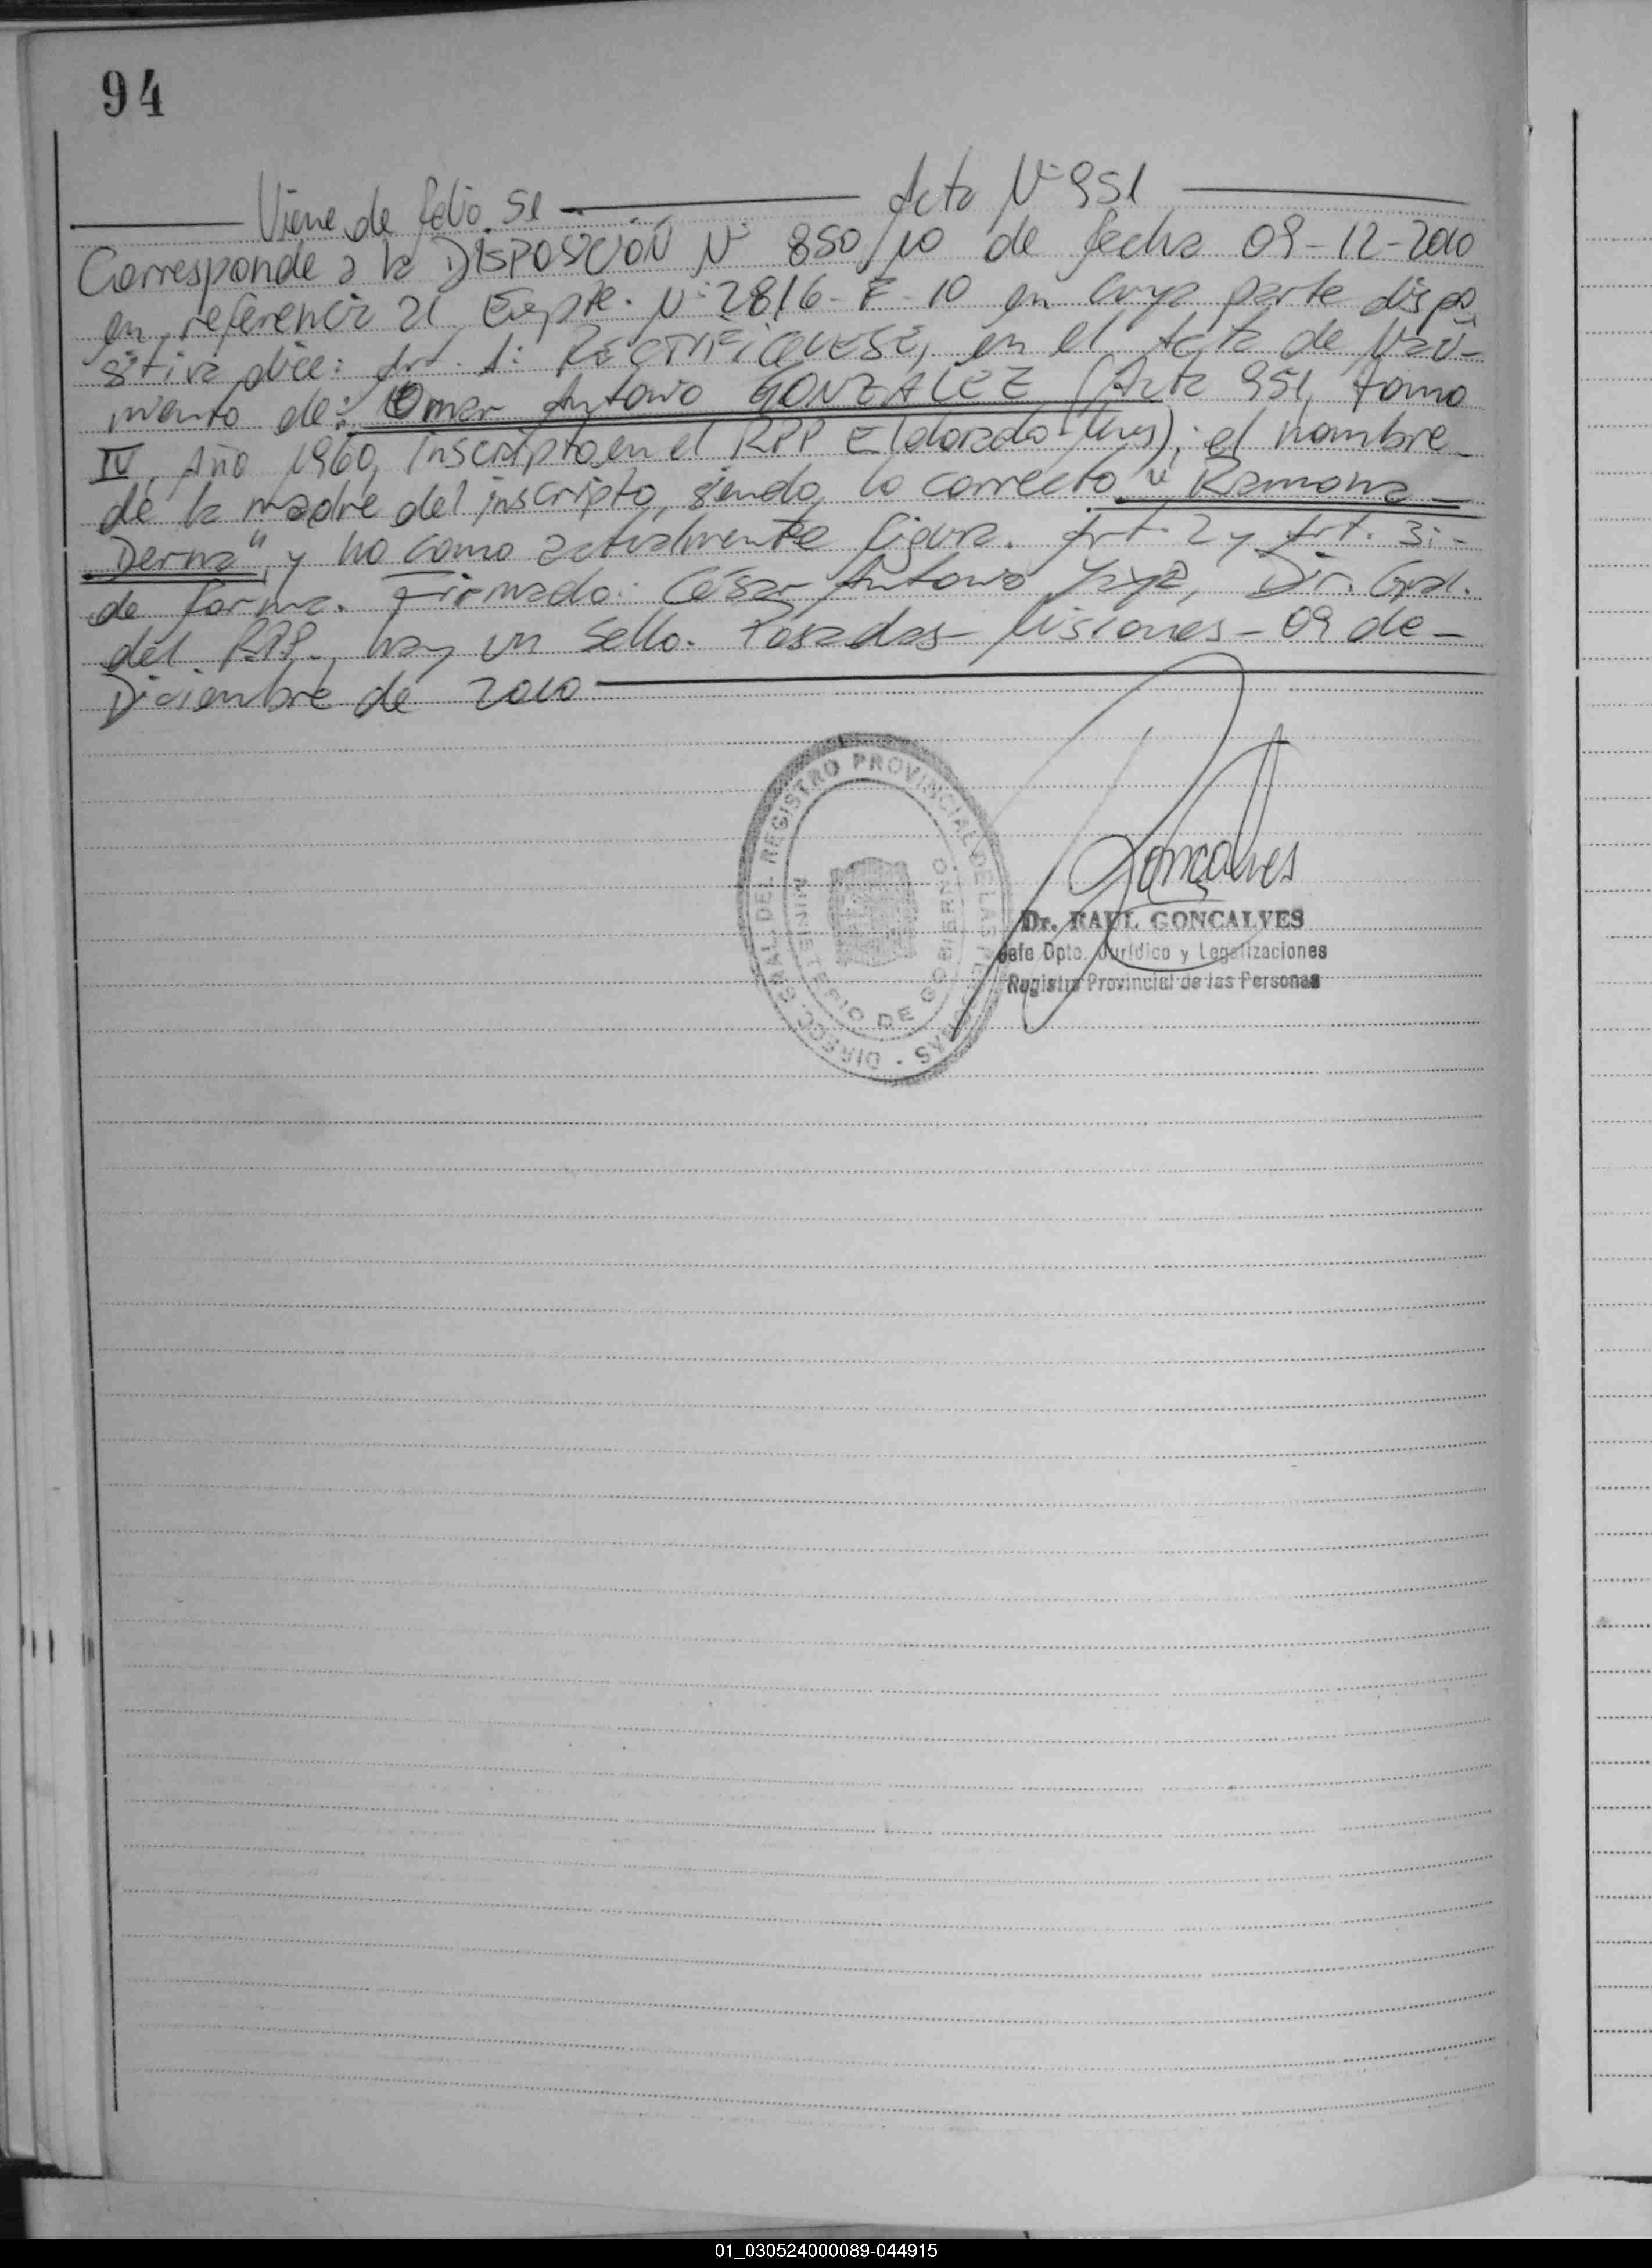 94
Viene de folio 51 Acta N° 951
Corresponde a la DISPOSICIÓN N° 850/10 de fecha 09-12-2010
en referencia al Expte. N° 2816-F-10 en cuya parte dispo
sitiva dice: Art. 1: RECTIFIQUESE, en el Acta de Naci-
miento de: Omar Antonio GONZALEZ (Acta 951, tomo
IV, Año 1960, inscripto en el RPP Eldorado-Mnes); el nombre
de la madre del inscripto, siendo lo correcto "Ramona
Derna", y no como actualmente figura. Art. 2 y Art. 3: -
de forma. Firmado: César Antonio Yaya, Dir. Gral.
del RPP, hay un sello. Posadas - Misiones - 09 de -
Diciembre de 2010
DIRECC. GRAL. DEL REGISTRO PROVINCIAL DE LAS PERSONAS -
MINISTERIO DE GOBIERNO
Goncalves
Dr. RAUL GONCALVES
Jefe Dpto. Jurídico y Legalizaciones
Registro Provincial de las Personas
01_030524000089-044915